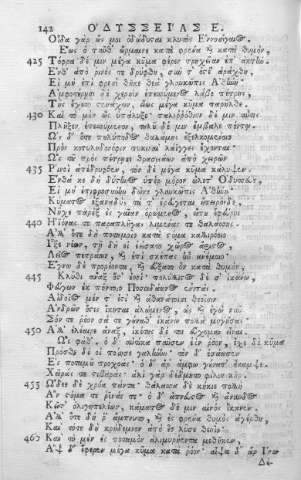 142 Ο'ΔΥΣΣΕΙ'ΑΣ Ε.
Οἶδα γὰρ ὥς μοι ὀδώδυσται κλυτὸς Ἐννοσίγαιος.
Ἕως ὁ ταῦθ' ὥρμαινε κατὰ φρένα καὶ κατὰ θυμὸν,
425 Τόφρα δέ μιν μέγα κῦμα φέρεν τρηχεῖαν ἐπ' ἀκτήν.
Ἔνθα κ' ἀπὸ ῥινοὺς δρύφθη, σὺν δ' ὀστέ' ἀράχθη,
Εἰ μὴ ἐπὶ φρεσὶ θῆκε θεὰ γλαυκῶπις Ἀθήνη·
Ἀμφοτέρῃσι δὲ χερσὶν ἐπεσσύμενος λάβε πέτρης,
Τῆς ἔχετο στενάχων, ἕως μέγα κῦμα παρῆλθε.
430 Καὶ τὸ μὲν ὣς ὑπάλυξε· παλιῤῥόθιον δέ μιν αὖτις
Πλῆξεν ἐπεσσύμενον, τηλοῦ δέ μιν ἔμβαλε πόντῳ.
Ὡς δ' ὅτε πουλύποδος θαλάμης ἐξελκομένοιο
Πρὸς κοτυληδονόφιν πυκιναὶ λάϊγγες ἔχονται·
Ὣς τοῦ πρὸς πέτρῃσι θρασειάων ἀπὸ χειρῶν
435 Ῥινοὶ ἀπέδρυφθεν, τὸν δὲ μέγα κῦμα κάλυψεν.
Ἔνθα κε δὴ δύστηνος ὑπὲρ μόρον ὤλετ' Ὀδυσσεὺς,
Εἰ μὴ ἐπιφροσύνην δῶκε γλαυκῶπις Ἀθήνη·
Κύματος ἐξαναδὺς, τά τ' ἐρεύγεται ἤπειρόνδε,
Νῆχε παρὲξ ἐς γαῖαν ὁρώμενος, εἴ που ἐφεύροι
440 Ἠϊόνας τε παραπλῆγας λιμένας τε θαλάσσης.
Ἀλλ' ὅτε δὴ ποταμοῖο κατὰ στόμα καλλιρόοιο
Ἷξε νέων, τῇ δή οἱ ἐείσατο χῶρος ἄριστος,
Λεῖος πετράων, καὶ ἐπὶ σκέπας ἦν ἀνέμοιο·
Ἔγνω δὲ προρέοντα, καὶ εὔξατο ὃν κατὰ θυμόν,
445 Κλῦθι ἄναξ ὅτις ἐσσί· πολύλλιστον δέ σ' ἱκάνω,
Φεύγων ἐκ πόντοιο Ποσειδάωνος ἐνιπάς.
Αἰδοῖος μέν τ' ἐστὶ καὶ ἀθανάτοισι θεοῖσιν
Ἀνδρῶν ὅστις ἵκηται ἀλώμενος, ὡς καὶ ἐγὼ νῦν
Σόν τε ῥόον σά τε γούναθ' ἱκάνω πολλὰ μογήσας.
450 Ἀλλ' ἐλέαιρε ἄναξ, ἱκέτης δέ τοι εὔχομαι εἶναι.
Ὣς φάθ', ὁ δ' αὐτίκα παῦσεν ἑὸν ῥόον, ἔσχε δὲ κῦμα
Πρόσθε δέ οἱ ποίησε γαλήνην· τὸν δ' ἐσάωσεν
Ἐς ποταμοῦ προχοάς· ὁ δ' ἄρ' ἄμφω γούνατ' ἔκαμψε,
Χεῖράς τε στιβαράς· ἁλὶ γὰρ δέδμητο φίλον κῆρ.
455 ᾬδεε δὲ χρόα πάντα· θάλασσα δὲ κήκιε πολλὴ
Ἂν στόμα τε ῥῖνάς τε· ὁ δ' ἄπνευστος καὶ ἄναυδος
Κεῖτ' ὀλιγηπελέων, κάματος δέ μιν αἰνὸς ἵκανεν.
Ἀλλ' ὅτε δή ῥ' ἄμπνυτο, καὶ ἐς φρένα θυμὸς ἀγέρθη,
Καὶ τότε δὴ κρήδεμνον ἀπὸ ἕο λῦσε θεοῖο·
460 Καὶ τὸ μὲν ἐς ποταμὸν ἁλιμυρήεντα μεθῆκεν,
Ἂψ δ' ἔφερεν μέγα κῦμα κατὰ ῥόον· αἶψα δ' ἄρ' Ἰνὼ
Δέ-